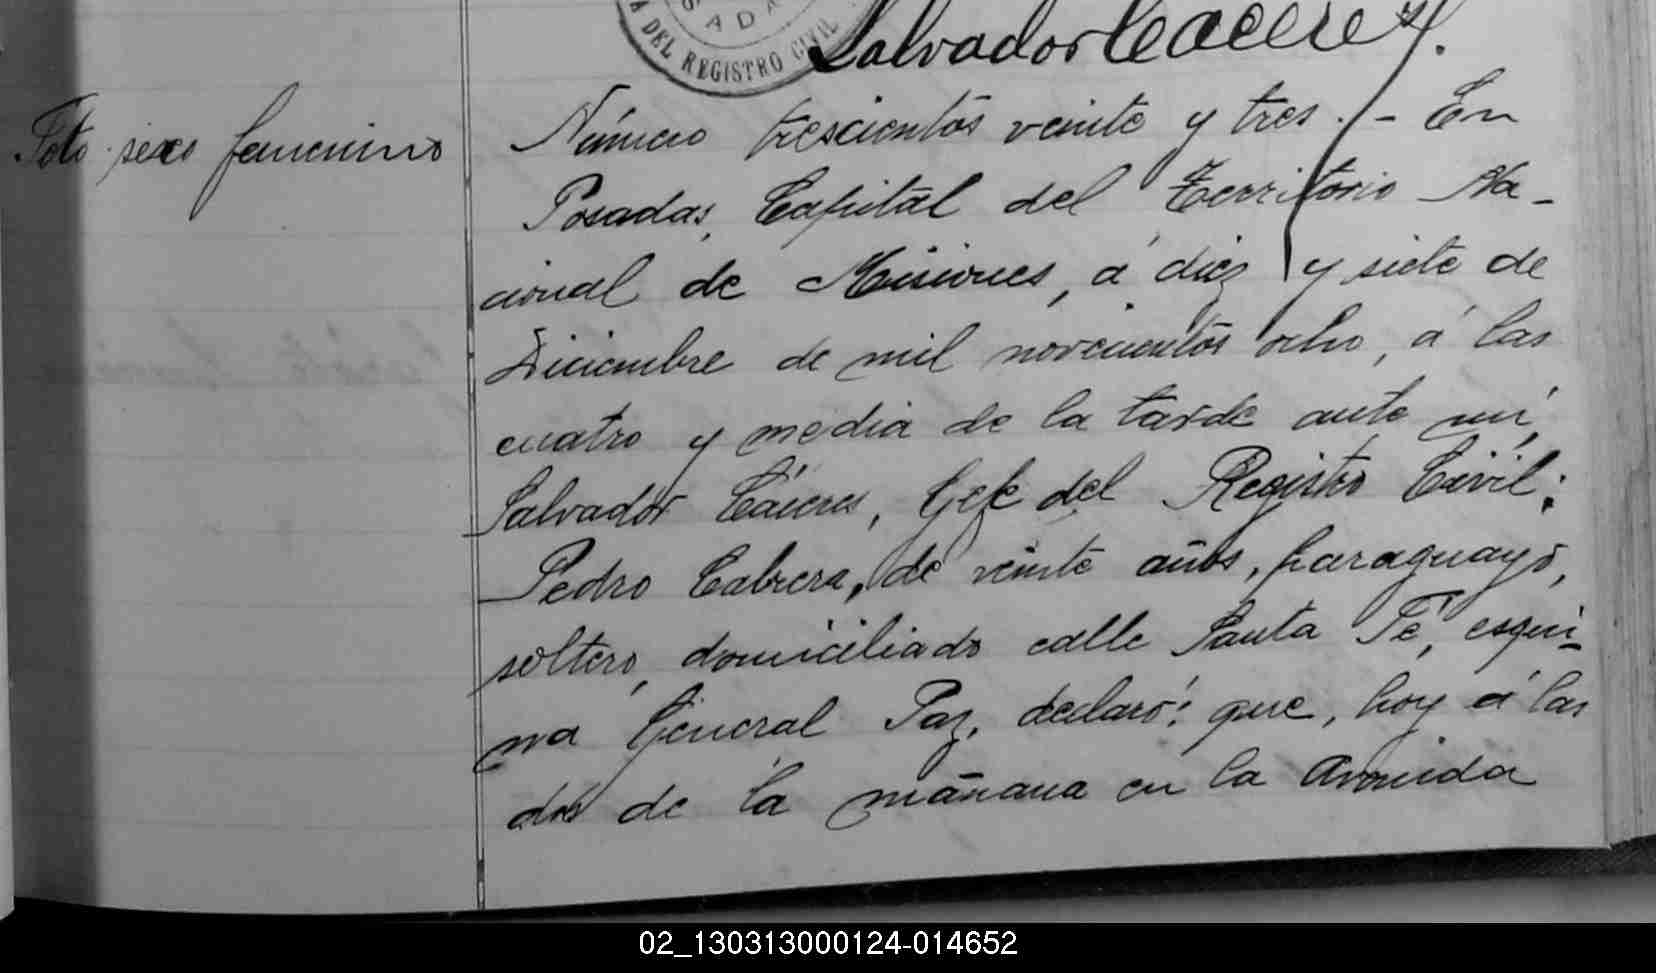 SADAS
A DEL REGISTRO CIVIL
Salvador Caceres.
Feto sexo femenino
Número trescientos veinte y tres.- En
Posadas, Capital del Territorio Na-
cional de Misiones, á diez y siete de
Diciembre de mil novecientos ocho, á las
cuatro y media de la tarde ante mí,
Salvador Cáceres, Gefe del Registro Civil;
Pedro Cabrera, de veinte años, paraguayo,
soltero, domiciliado calle Santa Fé, esqui-
na General Paz, declaró: que, hoy á las
dos de la mañana en la Avenida
02_130313000124-014652